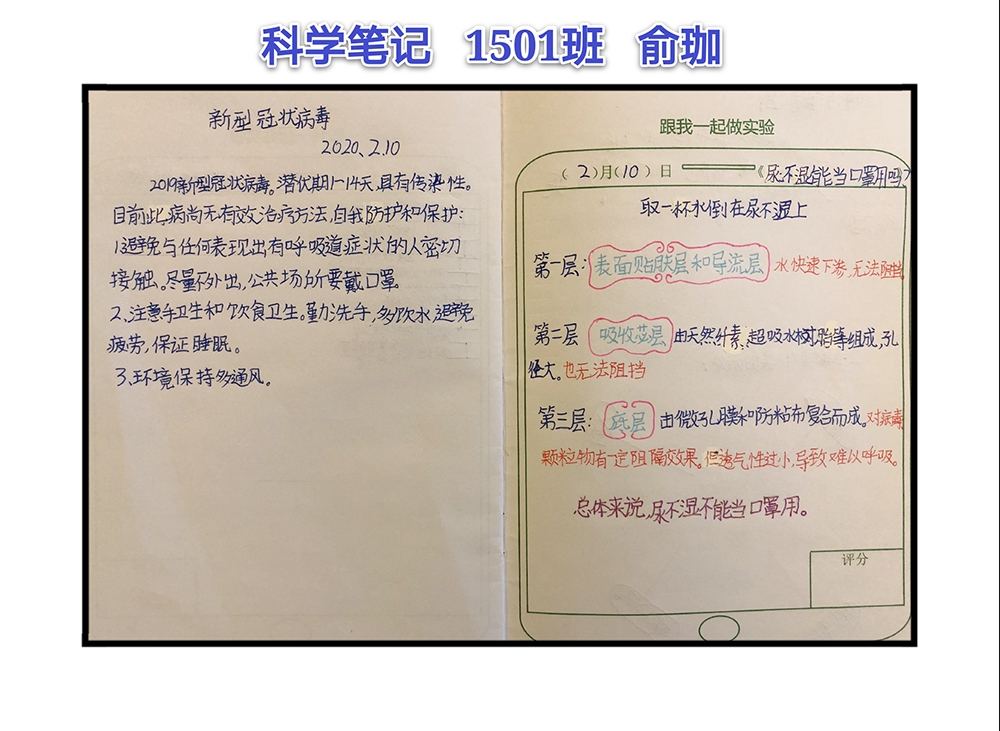 科学笔记 1501班 俞珈
新型冠状病毒
2020、2.10
2019新型冠状病毒。潜伏期1-14天,具有传染性。
目前此病尚无有效治疗方法,自我防护和保护:
1.避免与任何表现出有呼吸道症状的人密切
接触。尽量不外出,公共场所要戴口罩。
2、注意手卫生和饮食卫生。勤洗手,多饮水,避免
疲劳,保证睡眠。
3、环境保持多通风。
跟我一起做实验
(2)月(10)日 《尿不湿能当口罩用吗?
取一杯水倒在尿不湿上
第一层:表面贴肤层和导流层 水快速下渗,无法阻挡
第二层 吸收芯层 由天然纤素、超吸水树脂等组成,孔
径大。也无法阻挡
第三层:底层 由微孔膜和防粘布复合而成。对病毒
颗粒物有一定阻隔效果。但透气性过小,导致难以呼吸。
总体来说,尿不湿不能当口罩用。
评分